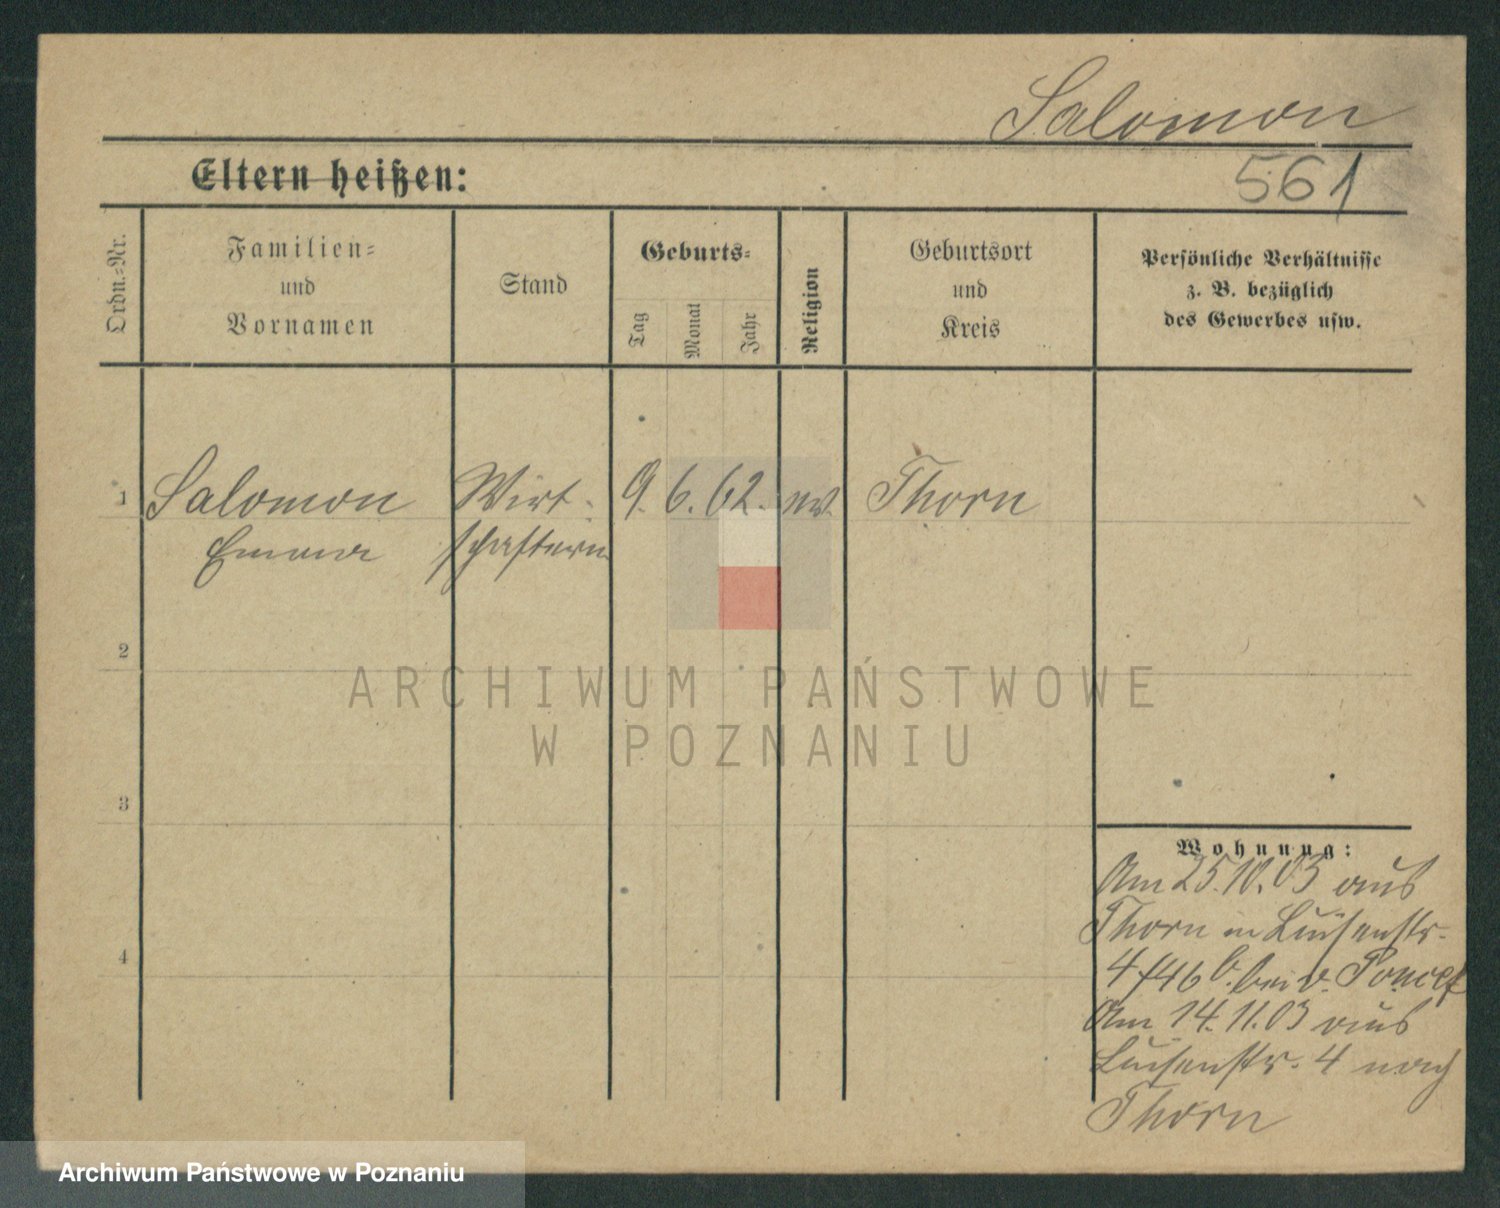 Salomon
Eltern heißen:
561
Ordn.=Nr.
Familien=
und
Vornamen
Stand
Geburts=
Tag
Monat
Jahr
Religion
Geburtsort
und
Kreis
Persönliche Verhältnisse
z. B. bezüglich
des Gewerbes usw.
1
Salomon
Emma
Wirt-
schafterin
9. 6. 62.
Thorn
2
ARCHIWUM PAŃSTWOWE
W POZNANIU
3
4
Wohnung:
Am 25.10.03 aus
Thorn in Luisenstr.
4 bei v.
Am 14.11.03 aus
Luisenstr. 4 nach
Thorn
Archiwum Państwowe w Poznaniu